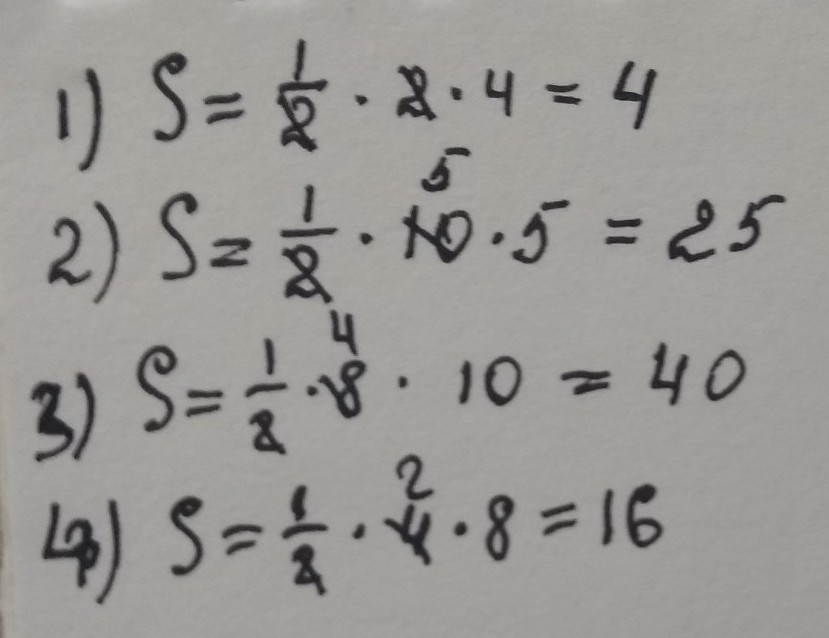 1) S = 1/2 · 2 · 4 = 4
5
2) S = 1/2 · 10 · 5 = 25
4
3) S = 1/2 · 8 · 10 = 40
2
4) S = 1/2 · 4 · 8 = 16